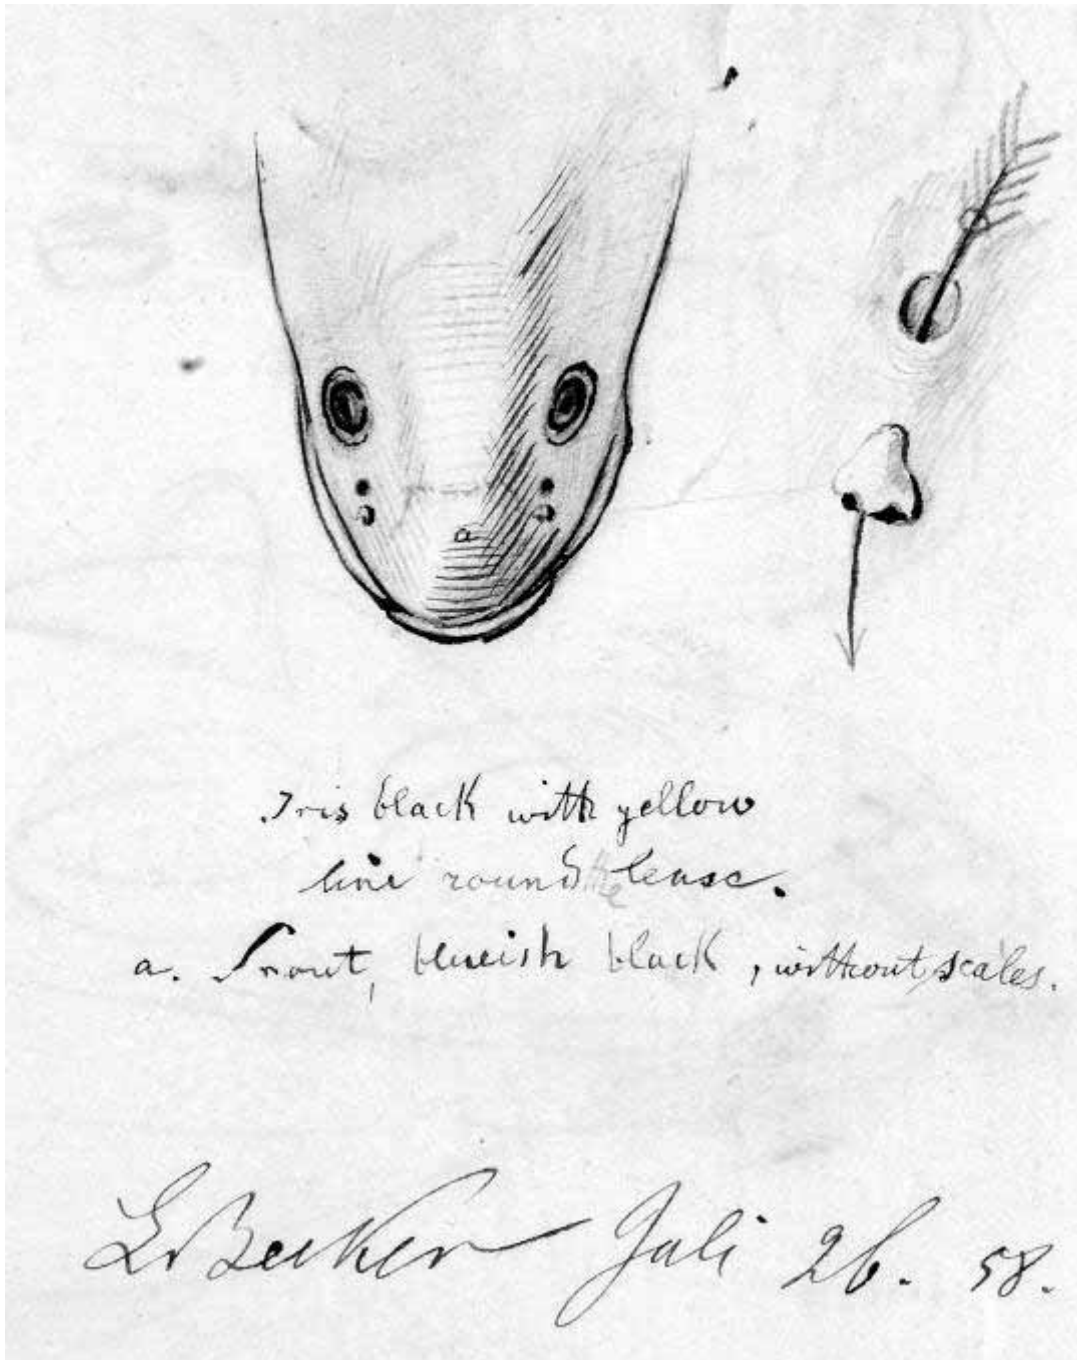 a
Iris black with yellow
line round the lense.
a. Snout, blueish black, without scales.
L Becker Juli 26. 58.